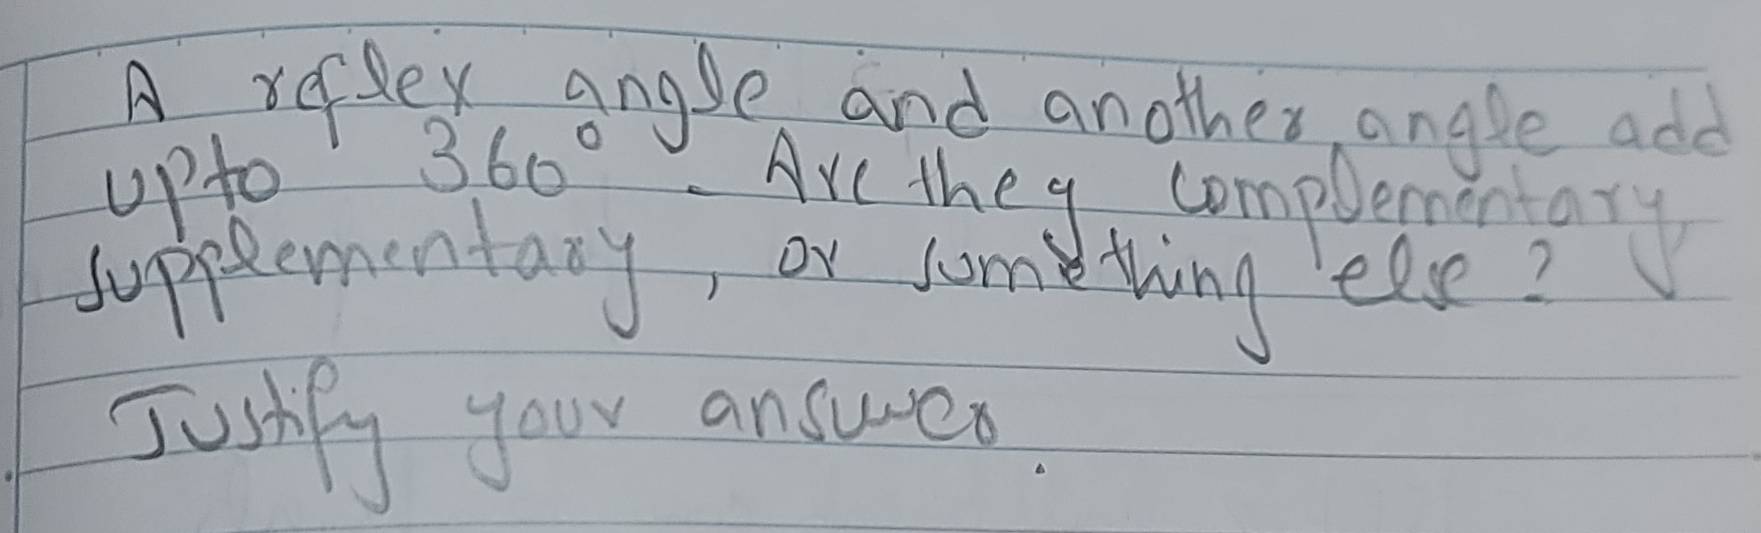 A reflex angle and another angle add
upto 360°. Are they complementary,
supplementary, or something else?
Justify your answer.